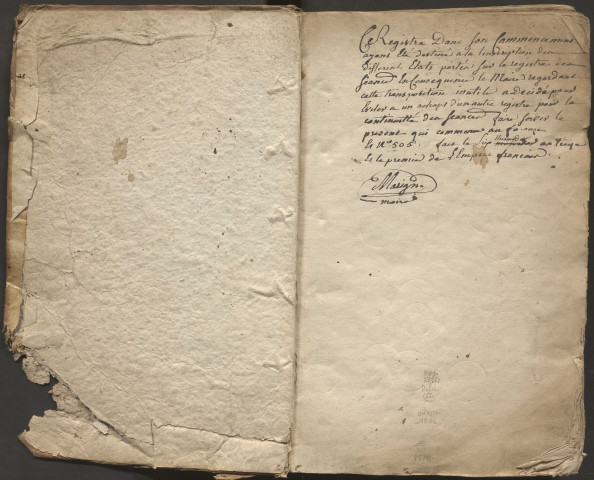 Ce Registre Dans son Commencement
ayant Eté destiné a la transcription des
differents Etats portés sur le registre des
Séances En Consequence le Maire regardant
cette transposition inutile a decidé pour
Eviter a un achapt d'un autre registre pour la
continuitté des seances faire servir le
present qui commence au
le N° 505. fait le six an treize
Et le premier de l'Empire francais
Marign
maire